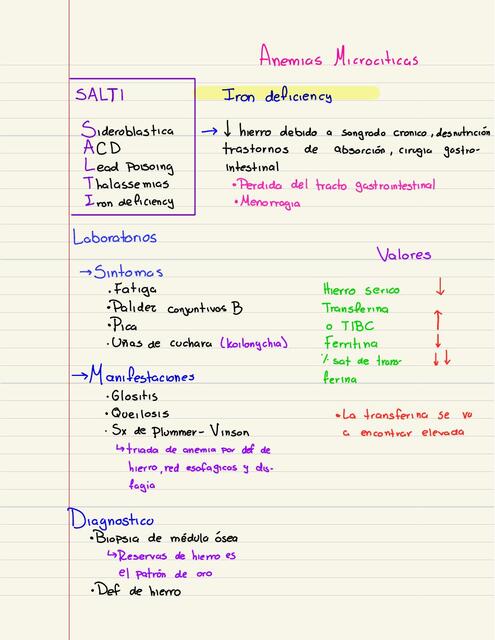 Anemias Microciticas
SALTI
Sideroblastica
ACD
Lead Poisoing
Thalassemias
Iron deficiency
Iron deficiency
→ ↓ hierro debido a sangrado cronico, desnutrición
trastornos de absorción, cirugia gastro-
intestinal
• Perdida del tracto gastrointestinal
• Menorragia
Laboratorios
→ Sintomas
• Fatiga
• Palidez conjuntivos B
• Pica
• Uñas de cuchara (koilonychia)
→ Manifestaciones
• Glositis
• Queilosis
• Sx de Plummer-Vinson
↳ triada de anemia por def de
hierro, red esofagicos y dis-
fagia
Valores
Hierro serico ↓
Transferina
o TIBC ↑
Ferritina ↓
% sat de trans- ↓↓
ferina
• La transferina se va
a encontrar elevada
Diagnostico
• Biopsia de médulo ósea
↳ Reservas de hierro es
el patrón de oro
• Def de hierro